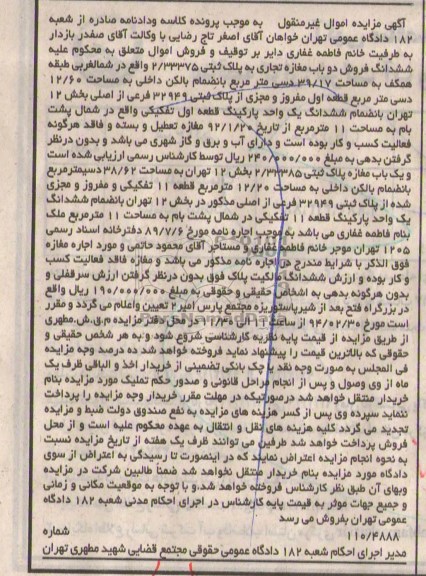 آگهی مزایده اموال غیرمنقول به موجب پرونده کلاسه ودادنامه صادره از شعبه
۱۸۲ دادگاه عمومی تهران خواهان آقای اصغر تاج رضایی با وکالت آقای صفدر بازدار
به طرفیت خانم فاطمه غفاری دایر بر توقیف و فروش اموال متعلق به محکوم علیه
ششدانگ فروش دو باب مغازه تجاری به پلاک ثبتی ۲/۳۳۳۷۵ واقع در شمالغربی طبقه
همکف به مساحت ۳۹/۱۷ دسی متر مربع بانضمام بالکن داخلی به مساحت ۱۲/۶۰
دسی متر مربع قطعه اول مفروز و مجزی از پلاک ثبتی ۳۲۹۴۹ فرعی از اصلی بخش ۱۲
تهران بانضمام ششدانگ یک واحد پارکینگ قطعه اول تفکیکی واقع در شمال پشت
بام به مساحت ۱۱ مترمربع از تاریخ ۹۲/۱/۲۰ مغازه تعطیل و بسته و فاقد هرگونه
فعالیت کسب و کار بوده است و دارای آب و برق و گاز شهری می باشد و بدون درنظر
گرفتن بدهی به مبلغ ۲۴۰/۰۰۰/۰۰۰ ریال توسط کارشناس رسمی ارزیابی شده است
و یک باب مغازه پلاک ثبتی ۲/۳۳۳۸۵ بخش ۱۲ تهران به مساحت ۳۸/۶۲ دسیمترمربع
بانضمام بالکن داخلی به مساحت ۱۲/۲۰ مترمربع قطعه ۱۱ تفکیکی و مفروز و مجزی
شده از پلاک ثبتی ۳۲۹۴۹ فرعی از اصلی مذکور در بخش ۱۲ تهران بانضمام ششدانگ
یک واحد پارکینگ قطعه ۱۱ تفکیکی در شمال پشت بام به مساحت ۱۱ مترمربع ملک
بنام فاطمه غفاری می باشد به موجب اجاره نامه مورخ ۸۹/۷/۶ دفترخانه اسناد رسمی
۱۲۰۵ تهران موجر خانم فاطمه غفاری و مستأجر آقای محمود حاتمی و مورد اجاره مغازه
فوق الذکر با شرایط مندرج در اجاره نامه مذکور می باشد و مغازه فاقد فعالیت کسب
و کار بوده و ارزش ششدانگ مالکیت پلاک فوق بدون درنظر گرفتن ارزش سرقفلی و
بدون هرگونه بدهی به اشخاص حقیقی و حقوقی به مبلغ ۱۹۰/۰۰۰/۰۰۰ ریال واقع
در بزرگراه فتح بعد از شیرپاستوریزه مجتمع پارس امیر۲ تعیین واعلام می گردد و مقرر
است مورخ ۹۴/۰۲/۳۰ از ساعت ۱۱ الی ۱۱/۳۰ در محل دفتر مزایده م.ق.ش.مطهری
از طریق مزایده از قیمت پایه نظریه کارشناسی شروع شود و به هر شخص حقیقی و
حقوقی که بالاترین قیمت را پیشنهاد نماید فروخته خواهد شد ده درصد وجه مزایده
فی المجلس به صورت وجه نقد یا چک بانکی تضمینی از خریدار اخذ و الباقی ظرف یک
ماه از وی وصول و پس از انجام مراحل قانونی و صدور حکم تملیک مورد مزایده بنام
خریدار منتقل خواهد شد درصورتیکه در مهلت مقرر خریدار وجه مزایده را پرداخت
ننماید سپرده وی پس از کسر هزینه های مزایده به نفع صندوق دولت ضبط و مزایده
تجدید می گردد کلیه هزینه های نقل و انتقال به عهده محکوم علیه است و از محل
فروش پرداخت خواهد شد طرفین می توانند ظرف یک هفته از تاریخ مزایده نسبت
به نحوه انجام مزایده اعتراض نمایند که در اینصورت تا رسیدگی به اعتراض از سوی
دادگاه مورد مزایده بنام خریدار منتقل نخواهد شد ضمناً طالبین شرکت در مزایده
وبهای آن طبق نظر کارشناس فروخته خواهد شد.و با توجه به موقعیت مکانی و زمانی
و جمیع جهات موثر به قیمت پایه کارشناس در اجرای احکام مدنی شعبه ۱۸۲ دادگاه
عمومی تهران بفروش می رسد
۱۱۰/۴۸۸۸ شماره
مدیر اجرای احکام شعبه ۱۸۲ دادگاه عمومی حقوقی مجتمع قضایی شهید مطهری تهران